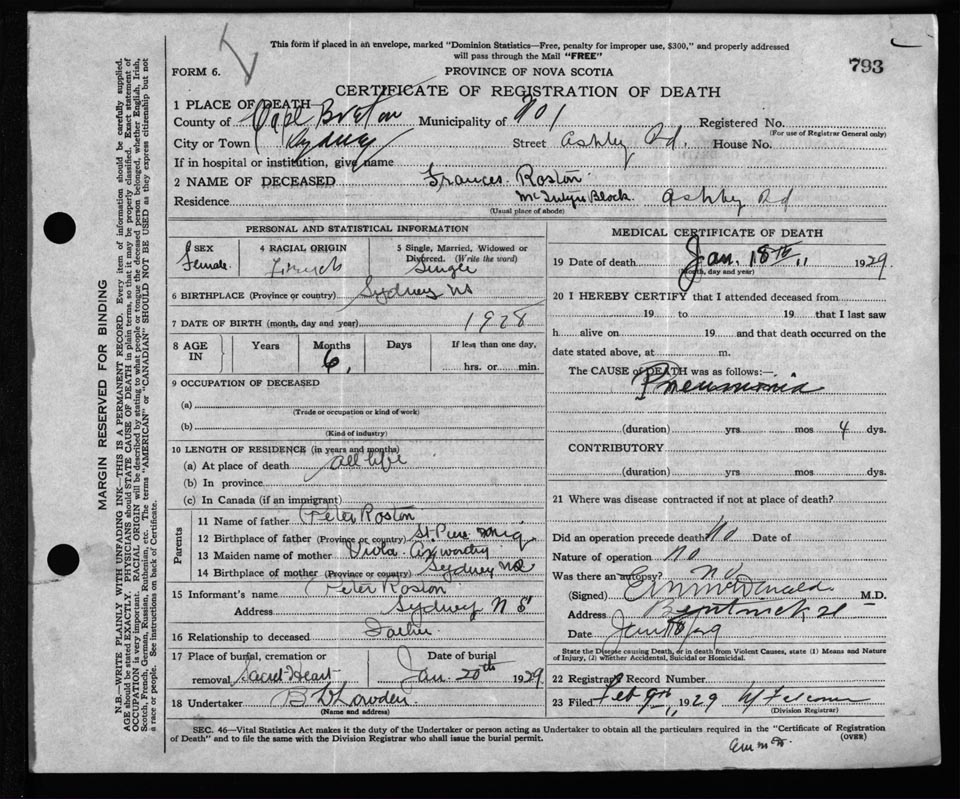 This form if placed in an envelope, marked "Dominion Statistics—Free, penalty for improper use, $300," and properly addressed
will pass through the Mail "FREE"
793
FORM 6.
PROVINCE OF NOVA SCOTIA
CERTIFICATE OF REGISTRATION OF DEATH
1 PLACE OF DEATH
County of Cape Breton Municipality of No 1 Registered No.
(For use of Registrar General only)
City or Town Sydney Street Ashby Rd. House No.
If in hospital or institution, give name
2 NAME OF DECEASED Frances Roston
Residence Block. Ashby Rd
(Usual place of abode)
PERSONAL AND STATISTICAL INFORMATION
3 SEX Female.
4 RACIAL ORIGIN French
5 Single, Married, Widowed or Divorced. (Write the word) Single
6 BIRTHPLACE (Province or country) Sydney NS
7 DATE OF BIRTH (month, day and year) 1928
8 AGE IN Years Months 6, Days If less than one day, hrs. or min.
9 OCCUPATION OF DECEASED
(a)
(Trade or occupation or kind of work)
(b)
(Kind of industry)
10 LENGTH OF RESIDENCE (in years and months)
(a) At place of death all life
(b) In province
(c) In Canada (if an immigrant)
Parents
11 Name of father Peter Roston
12 Birthplace of father (Province or country) St. Miq
13 Maiden name of mother Viola
14 Birthplace of mother (Province or country) Sydney NS
15 Informant's name Peter Roston
Address Sydney N S
16 Relationship to deceased Father
17 Place of burial, cremation or removal Sacred Heart Date of burial Jan. 20th 1929
18 Undertaker
(Name and address)
MEDICAL CERTIFICATE OF DEATH
19 Date of death Jan. 18th 1929
(Month, day and year)
20 I HEREBY CERTIFY that I attended deceased from
19 to 19 that I last saw
h alive on 19 and that death occurred on the
date stated above, at m.
The CAUSE of DEATH was as follows:—
Pneumonia
(duration) yrs mos 4 dys.
CONTRIBUTORY
(duration) yrs mos dys.
21 Where was disease contracted if not at place of death?
Did an operation precede death? No Date of
Nature of operation No
Was there an autopsy? No
(Signed) McDonald M.D.
Address
Date
State the Disease causing Death, or in death from Violent Causes, state (1) Means and Nature
of Injury, (2) whether Accidental, Suicidal or Homicidal.
22 Registrars Record Number
23 Filed Feb 9th 1929
(Division Registrar)
SEC. 46—Vital Statistics Act makes it the duty of the Undertaker or person acting as Undertaker to obtain all the particulars required in the "Certificate of Registration
of Death" and to file the same with the Division Registrar who shall issue the burial permit.
(OVER)
MARGIN RESERVED FOR BINDING
N.B.—WRITE PLAINLY WITH UNFADING INK—THIS IS A PERMANENT RECORD. Every item of information should be carefully supplied.
AGE should be stated EXACTLY. PHYSICIANS should STATE CAUSE OF DEATH in plain terms, so that it may be properly classified. Exact statement of
OCCUPATION is very important. RACIAL ORIGIN will be described by stating to what people or tongue the deceased person belonged, whether English, Irish,
Scotch, French, German, Russian, Ruthenian, etc. The terms "AMERICAN" or "CANADIAN" SHOULD NOT BE USED as they express citizenship but not
a race or people. See instructions on back of Certificate.